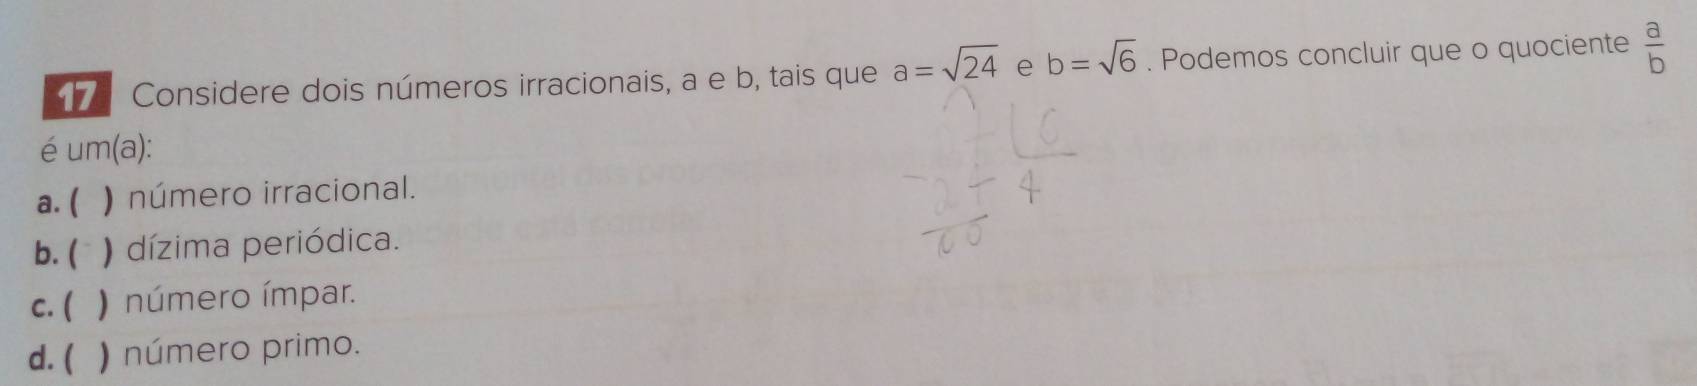 17 Considere dois números irracionais, a e b, tais que a = √24 e b = √6 . Podemos concluir que o quociente a/b
é um(a):
a. ( ) número irracional.
b. ( ) dízima periódica.
c. ( ) número ímpar.
d. ( ) número primo.
6
4